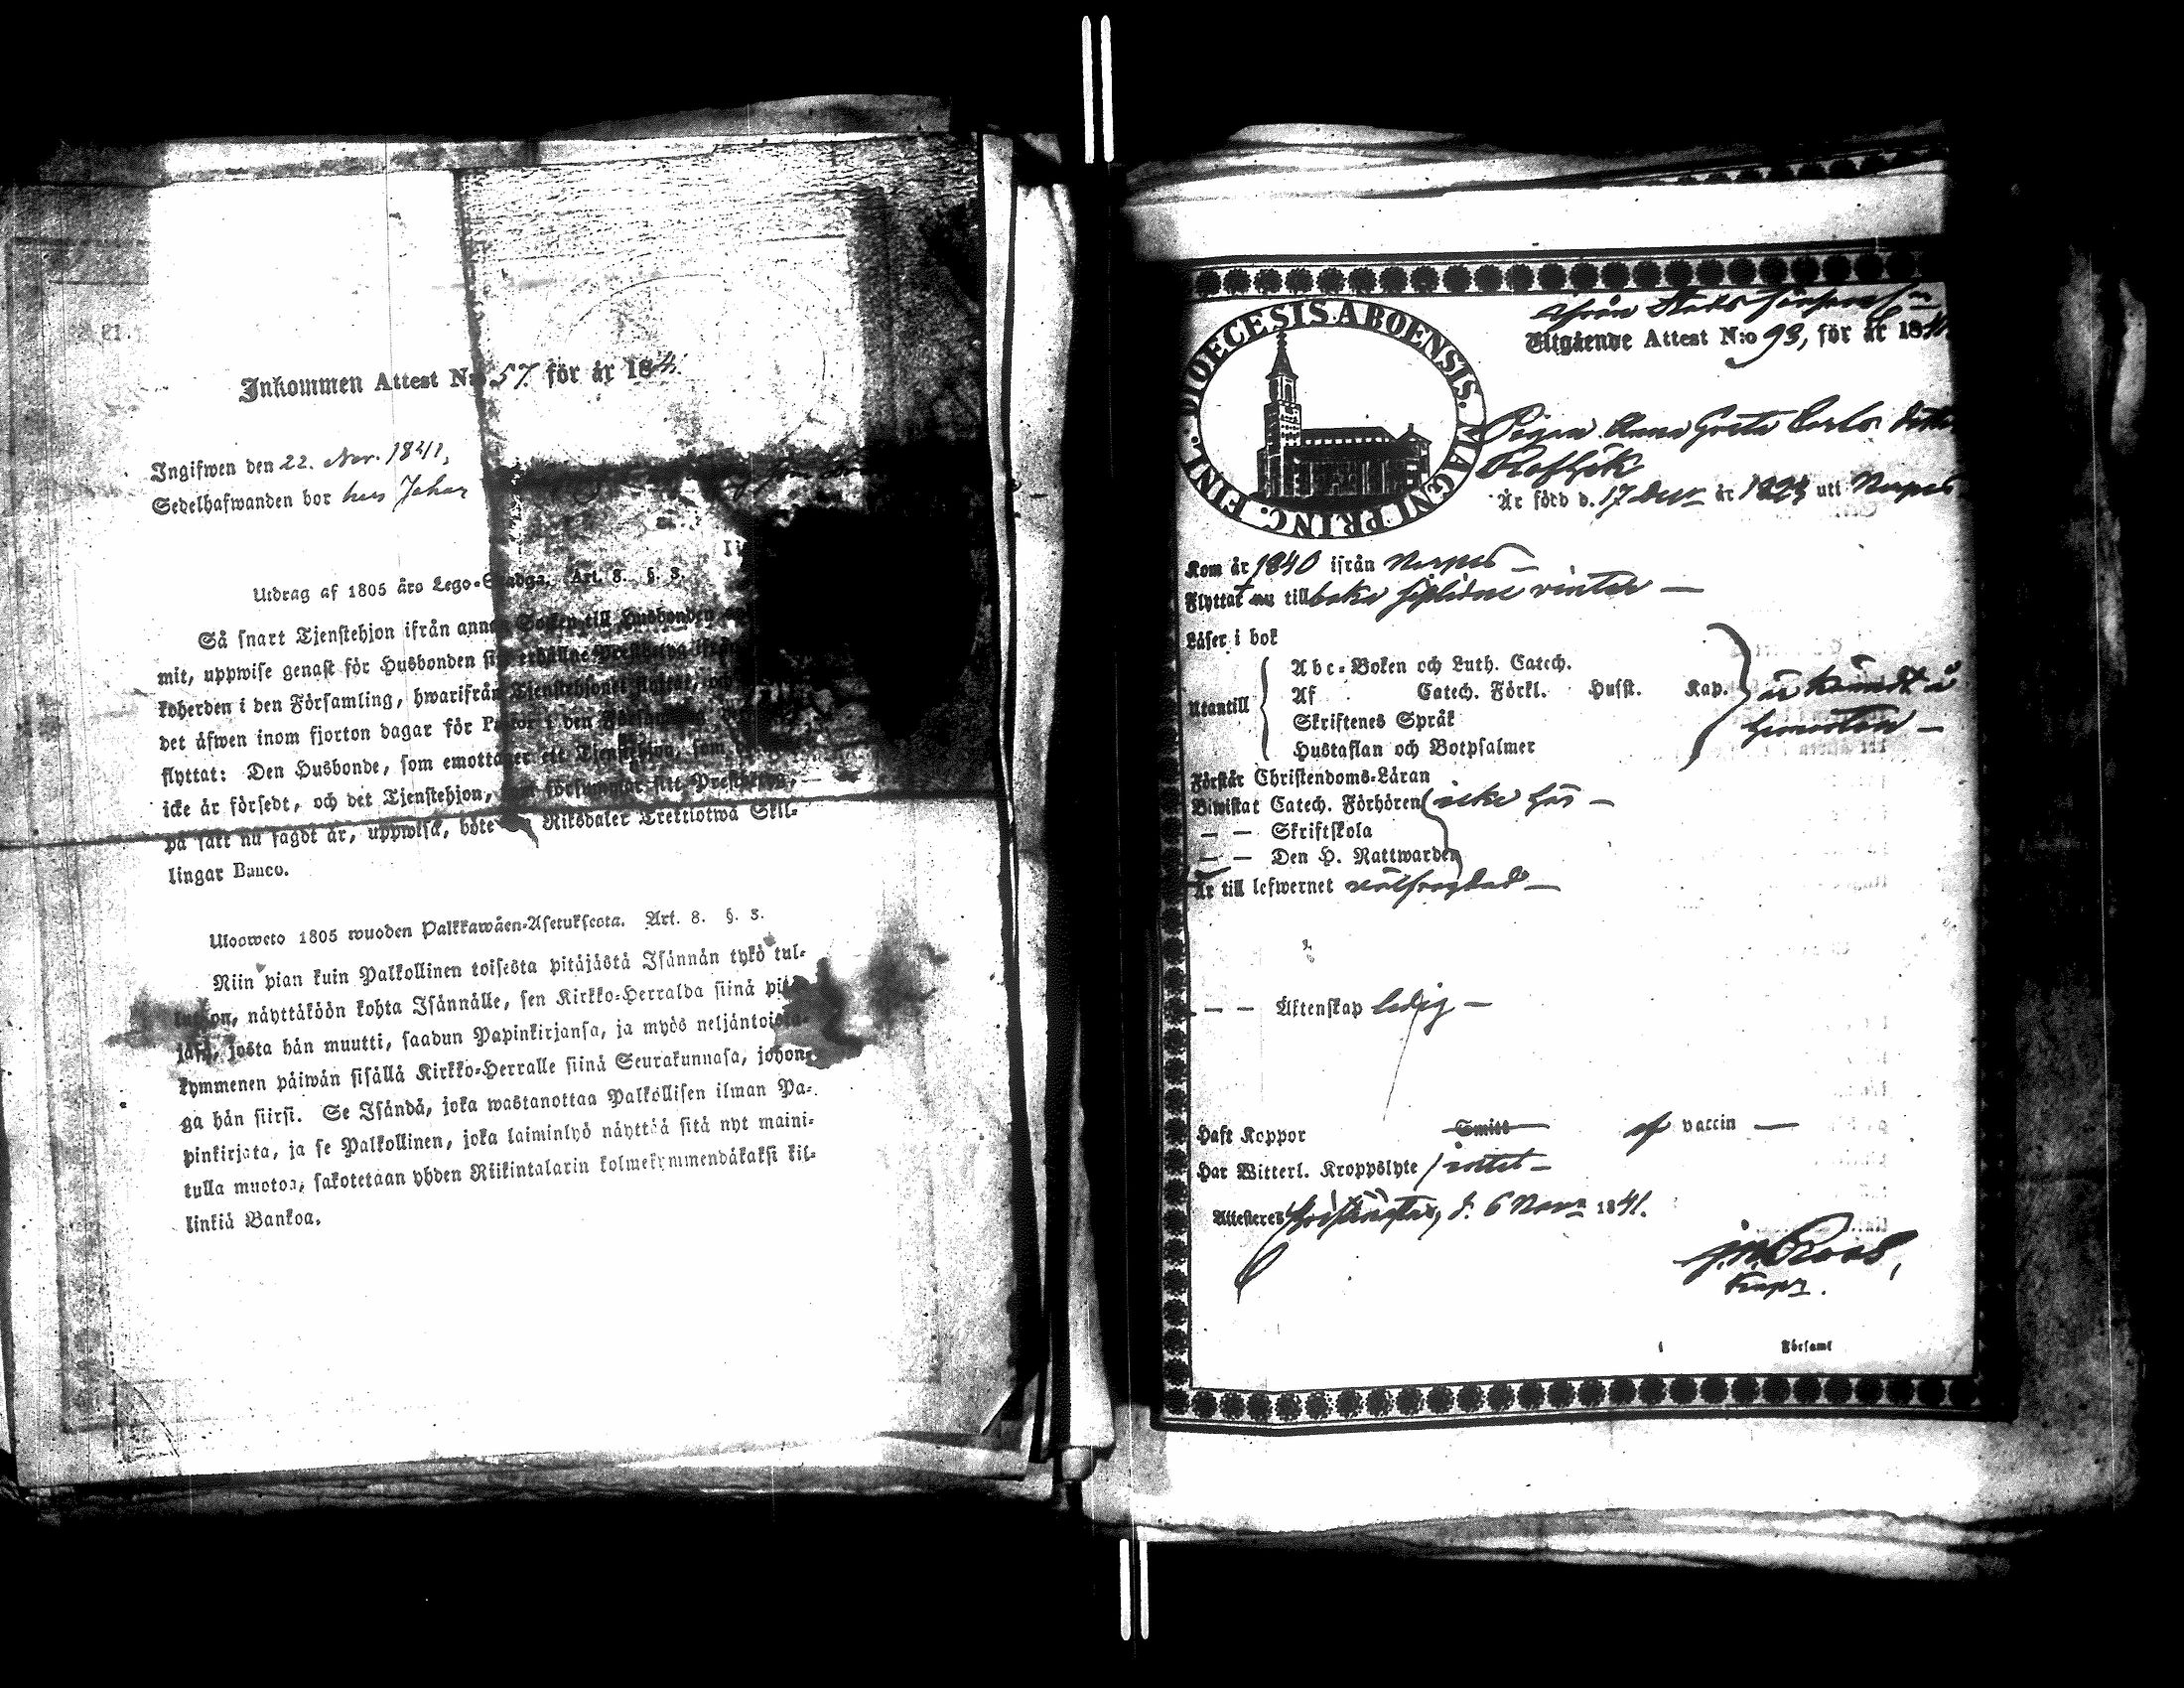 Inkommen Attest N:o 57 för år 184
Ingifwen den 22. Nov. 1841,
Sedelhafwanden bor hos Johan
Utdrag af 1805 års Lego-Stadga. Art. 8. §. 3.
Så snart Tjenstehjon ifrån annan Socken till Husbonden
mit, uppwise genast för Husbonden sitt erhållne Prestbetyg ifrån
koherden i den Församling, hwarifrån Tjenstehjonet flyttat, och
det äfwen inom fjorton dagar för Pastor i den Församling
flyttat: Den Husbonde, som emottager ett Tjenstehjon, som
icke är försedt, och det Tjenstehjon, som försummar sitt Prestbetyg,
på sätt nu sagdt är, uppwisa, böte en Riksdaler Trettiotwå Skil-
lingar Banco.
Ulosweto 1805 wuoden Palkkawäen-Asetuksesta. Art. 8. §. 3.
Niin pian kuin Palkollinen toisesta pitäjästä Isännän tykö tul-
lut on, näyttäköön kohta Isännälle, sen Kirkko-Herralda siinä pitä-
jäsä, josta hän muutti, saadun Papinkirjansa, ja myös neljäntoista-
kymmenen päiwän sisällä Kirkko-Herralle siinä Seurakunnasa, johon-
ga hän siirsi. Se Isändä, joka wastanottaa Palkollisen ilman Pa-
pinkirjata, ja se Palkollinen, joka laiminlyö näyttää sitä nyt maini-
tulla muotoa, sakotetaan yhden Riikintalarin kolmekymmendäkaksi kil-
linkiä Bankoa.
DIOECESIS ABOENSIS. MAGNI PRINC. FINL.
Ifrån Stads
Utgående Attest N:o 93, för år 1841.
Pigan Anna Greta Carls dotter
Är född d. 17 Dec år 1823 uti Nerpes
Kom år 1840 ifrån Nerpes
Flyttat nu tillbaka sistlidne vinter
Läser i bok
Abc-Boken och Luth. Catech.
Utantill Af Catech. Förkl. Husst. Kap.
Skriftenes Språk
Hustaflan och Botpsalmer
är kändt i
hemorten
Förstår Christendoms-Läran
Biwistat Catech. Förhören icke här
— — Skriftskola
— — Den H. Nattwarden
Är till lefwernet välfrägdad
— — Äktenskap ledig
Haft Koppor Smitt af vaccin
Har Witterl. Kroppslyte intet
Attesteras Christinestad, d. 6 Nov 1841.
Församl